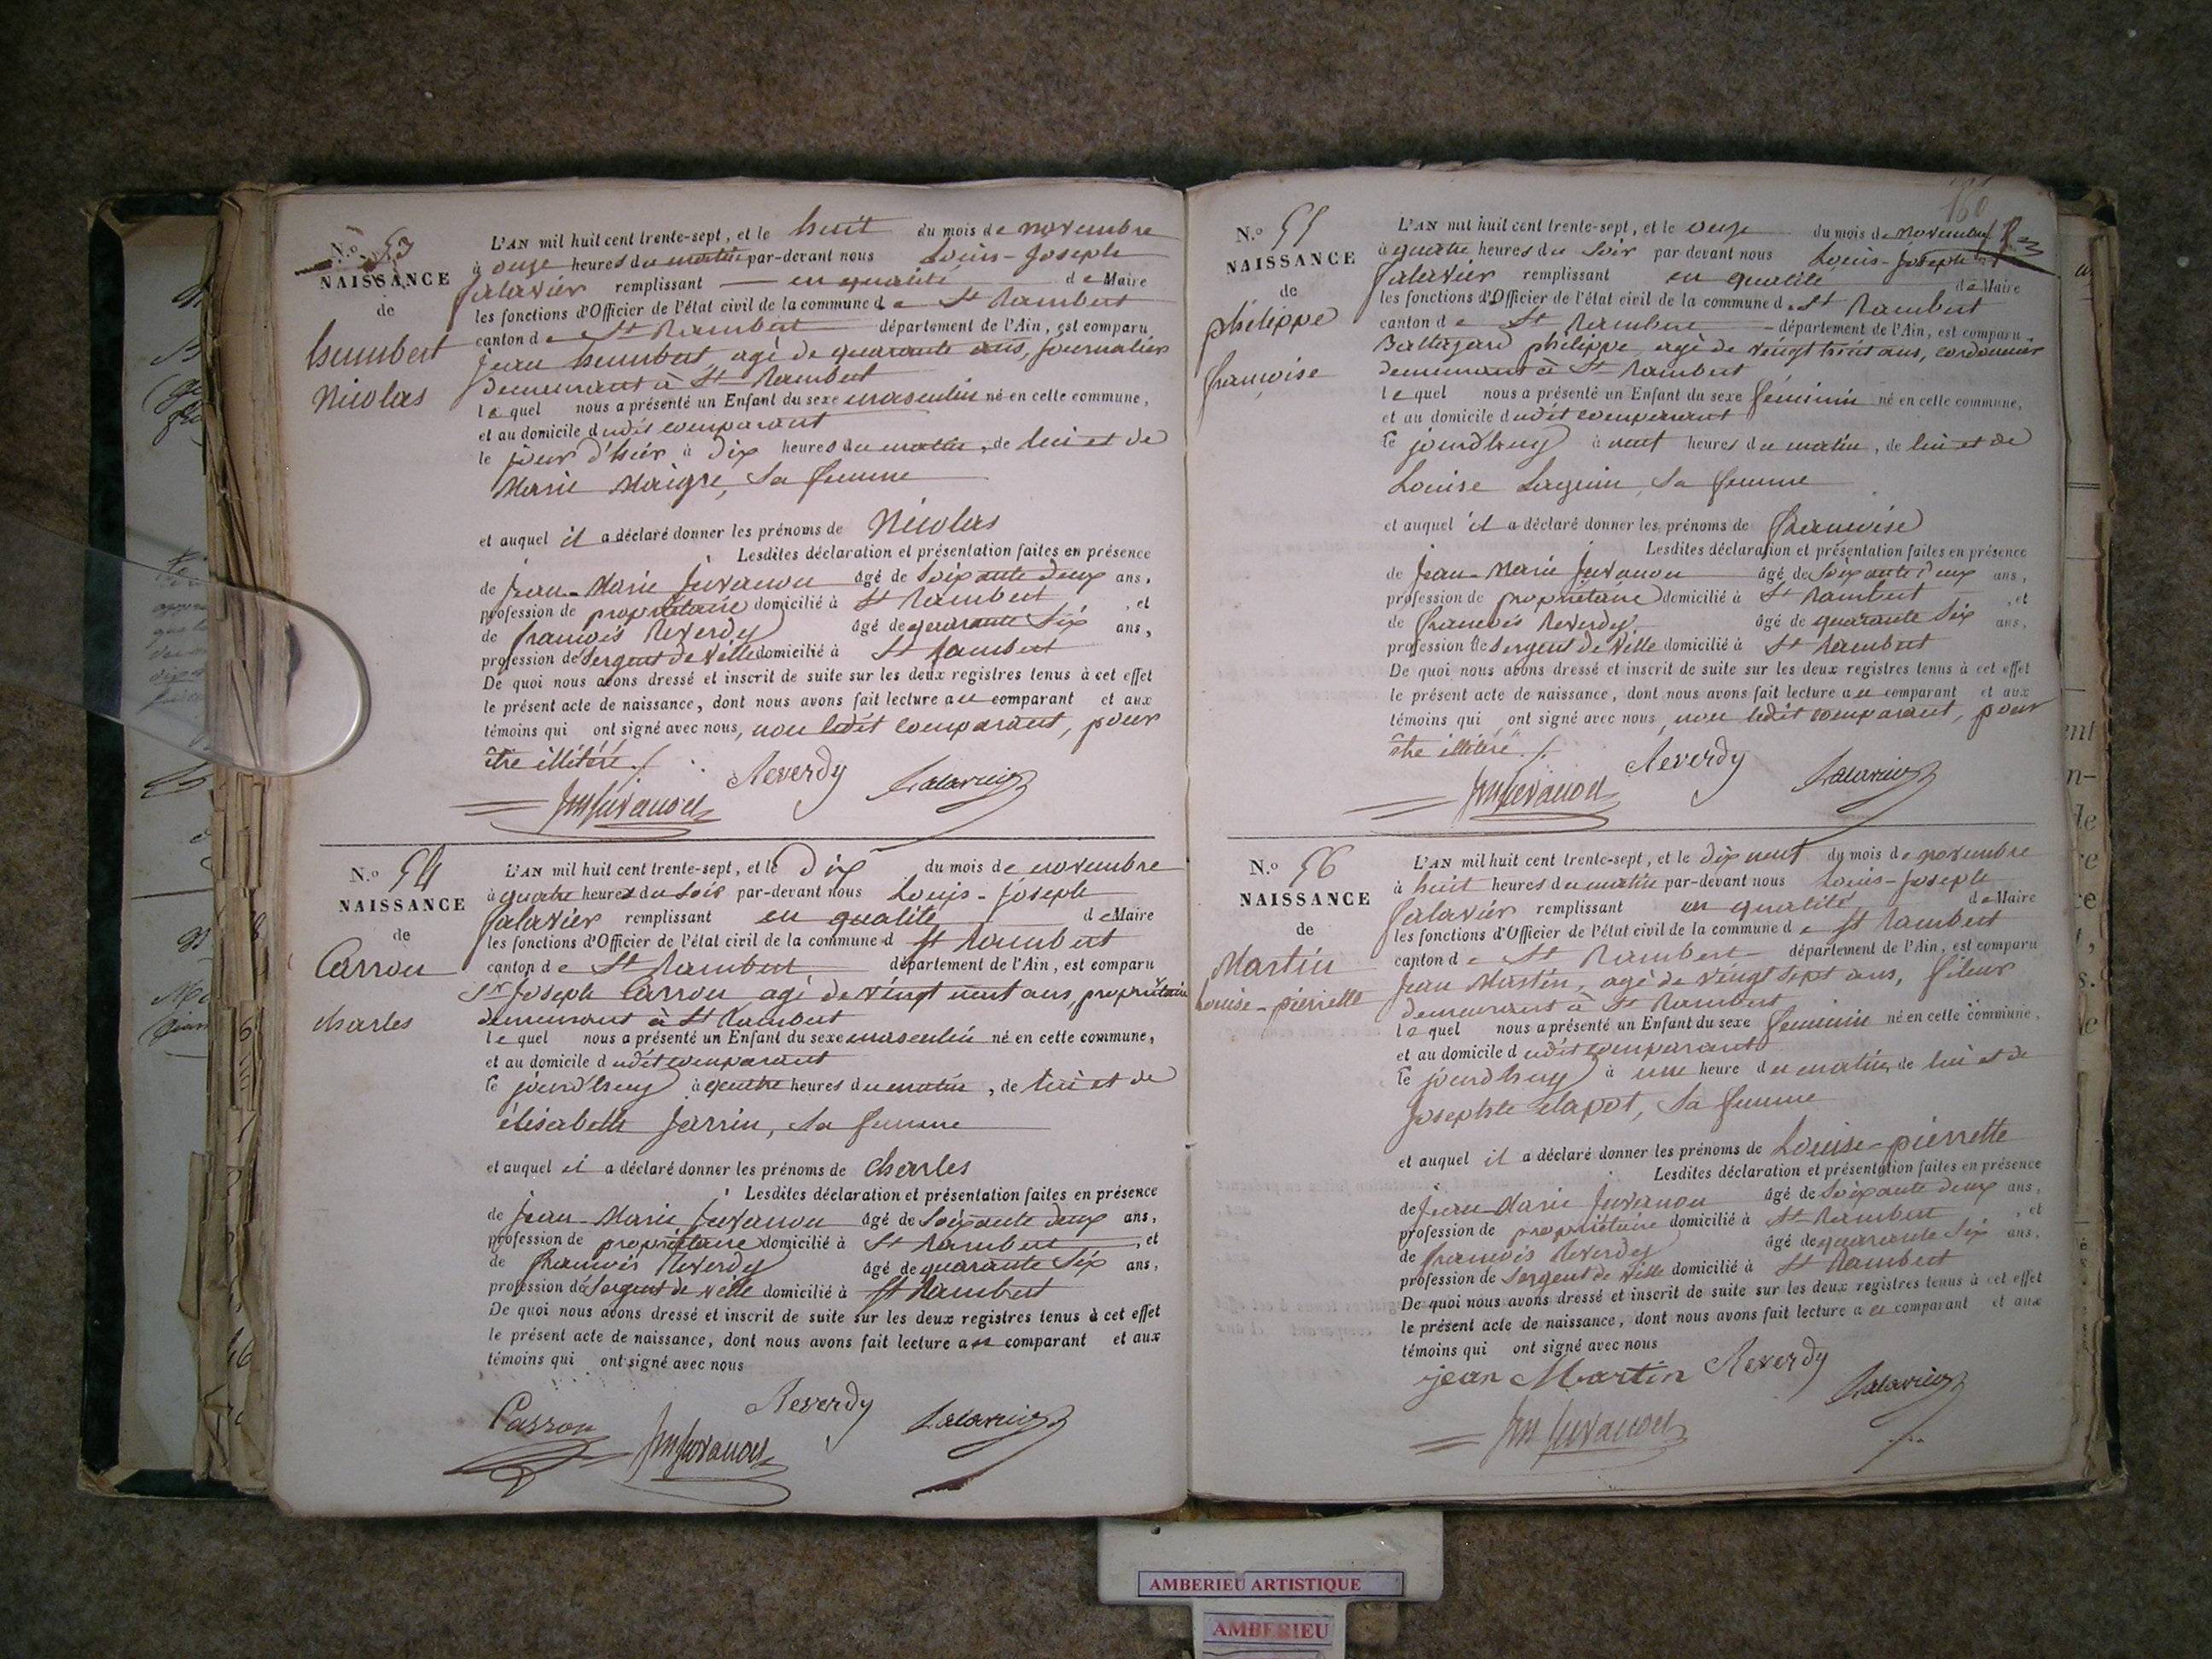 N.o 53
NAISSANCE
de
humbert
Nicolas
L'AN mil huit cent trente-sept, et le huit du mois de novembre
à onze heures du matin par-devant nous Louis-Joseph
falavier remplissant en qualité de Maire
les fonctions d'Officier de l'état civil de la commune de St Rambert
canton de St Rambert département de l'Ain, est comparu
Jean humbert, agé de quarante ans, journalier
demeurant à St Rambert
lequel nous a présenté un Enfant du sexe masculin né en cette commune,
et au domicile dudit comparant
le jour d'hier à dix heures du matin, de lui et de
Marie Maigre, sa femme
et auquel il a déclaré donner les prénoms de Nicolas
Lesdites déclaration et présentation faites en présence
de Jean-Marie Juvanon âgé de soixante deux ans,
profession de propriétaire domicilié à St Rambert, et
de françois Reverdy âgé de quarante six ans,
profession de Sergent de ville domicilié à St Rambert
De quoi nous avons dressé et inscrit de suite sur les deux registres tenus à cet effet
le présent acte de naissance, dont nous avons fait lecture au comparant et aux
témoins qui ont signé avec nous, non ledit comparant, pour
être illitéré ./.
Reverdy
JM Juvanon
N.o 54
NAISSANCE
de
Carron
charles
L'AN mil huit cent trente-sept, et le Dix du mois de novembre
à quatre heures du soir par-devant nous Louis-Joseph
falavier remplissant en qualité de Maire
les fonctions d'Officier de l'état civil de la commune d St Rambert
canton de St Rambert, département de l'Ain, est comparu
Sr Joseph Carron agé de vingt neuf ans, propriétaire
demeurant à St Rambert
lequel nous a présenté un Enfant du sexe masculin né en cette commune,
et au domicile dudit comparant
le jourd'huy à quatre heures du matin, de lui et de
élisabeth Jarrin, sa femme
et auquel il a déclaré donner les prénoms de charles
Lesdites déclaration et présentation faites en présence
de Jean-Marie Juvanon âgé de soixante deux ans,
profession de propriétaire domicilié à St Rambert, et
de françois Reverdy âgé de quarante six ans,
profession de Sergent de ville domicilié à St Rambert
De quoi nous avons dressé et inscrit de suite sur les deux registres tenus à cet effet
le présent acte de naissance, dont nous avons fait lecture au comparant et aux
témoins qui ont signé avec nous
Reverdy
Carron
JM Juvanon
160
N.o 55
NAISSANCE
de
philippe
françoise
L'AN mil huit cent trente-sept, et le onze du mois de novembre
à quatre heures du soir par-devant nous Louis-Joseph
falavier remplissant en qualité de Maire
les fonctions d'Officier de l'état civil de la commune de St Rambert
canton de St Rambert département de l'Ain, est comparu
Baltazard philippe agé de vingt huit ans, cordonnier
demeurant à St Rambert
lequel nous a présenté un Enfant du sexe féminin né en cette commune,
et au domicile dudit comparant
le jourd'huy à neuf heures du matin, de lui et de
Louise Laguin, sa femme
et auquel il a déclaré donner les prénoms de françoise
Lesdites déclaration et présentation faites en présence
de Jean-Marie Juvanon âgé de soixante deux ans,
profession de propriétaire domicilié à St Rambert, et
de françois Reverdy âgé de quarante six ans,
profession de Sergent de ville domicilié à St Rambert
De quoi nous avons dressé et inscrit de suite sur les deux registres tenus à cet effet
le présent acte de naissance, dont nous avons fait lecture au comparant et aux
témoins qui ont signé avec nous, non ledit comparant, pour
être illitéré ./.
Reverdy
JM Juvanon
N.o 56
NAISSANCE
de
Martin
Louise-pierrette
L'AN mil huit cent trente-sept, et le dix neuf du mois de novembre
à huit heures du matin par-devant nous Louis-Joseph
falavier remplissant en qualité de Maire
les fonctions d'Officier de l'état civil de la commune de St Rambert
canton de St Rambert département de l'Ain, est comparu
Jean Martin, agé de vingt sept ans, fileur
demeurant à St Rambert
lequel nous a présenté un Enfant du sexe féminin né en cette commune,
et au domicile dudit comparant
le jourd'huy à une heure du matin, de lui et de
Josephte clapot, sa femme
et auquel il a déclaré donner les prénoms de Louise-pierrette
Lesdites déclaration et présentation faites en présence
de Jean-Marie Juvanon âgé de soixante deux ans,
profession de propriétaire domicilié à St Rambert, et
de françois Reverdy âgé de quarante six ans,
profession de Sergent de ville domicilié à St Rambert
De quoi nous avons dressé et inscrit de suite sur les deux registres tenus à cet effet
le présent acte de naissance, dont nous avons fait lecture au comparant et aux
témoins qui ont signé avec nous
jean Martin Reverdy
JM Juvanon
AMBERIEU ARTISTIQUE
AMBERIEU